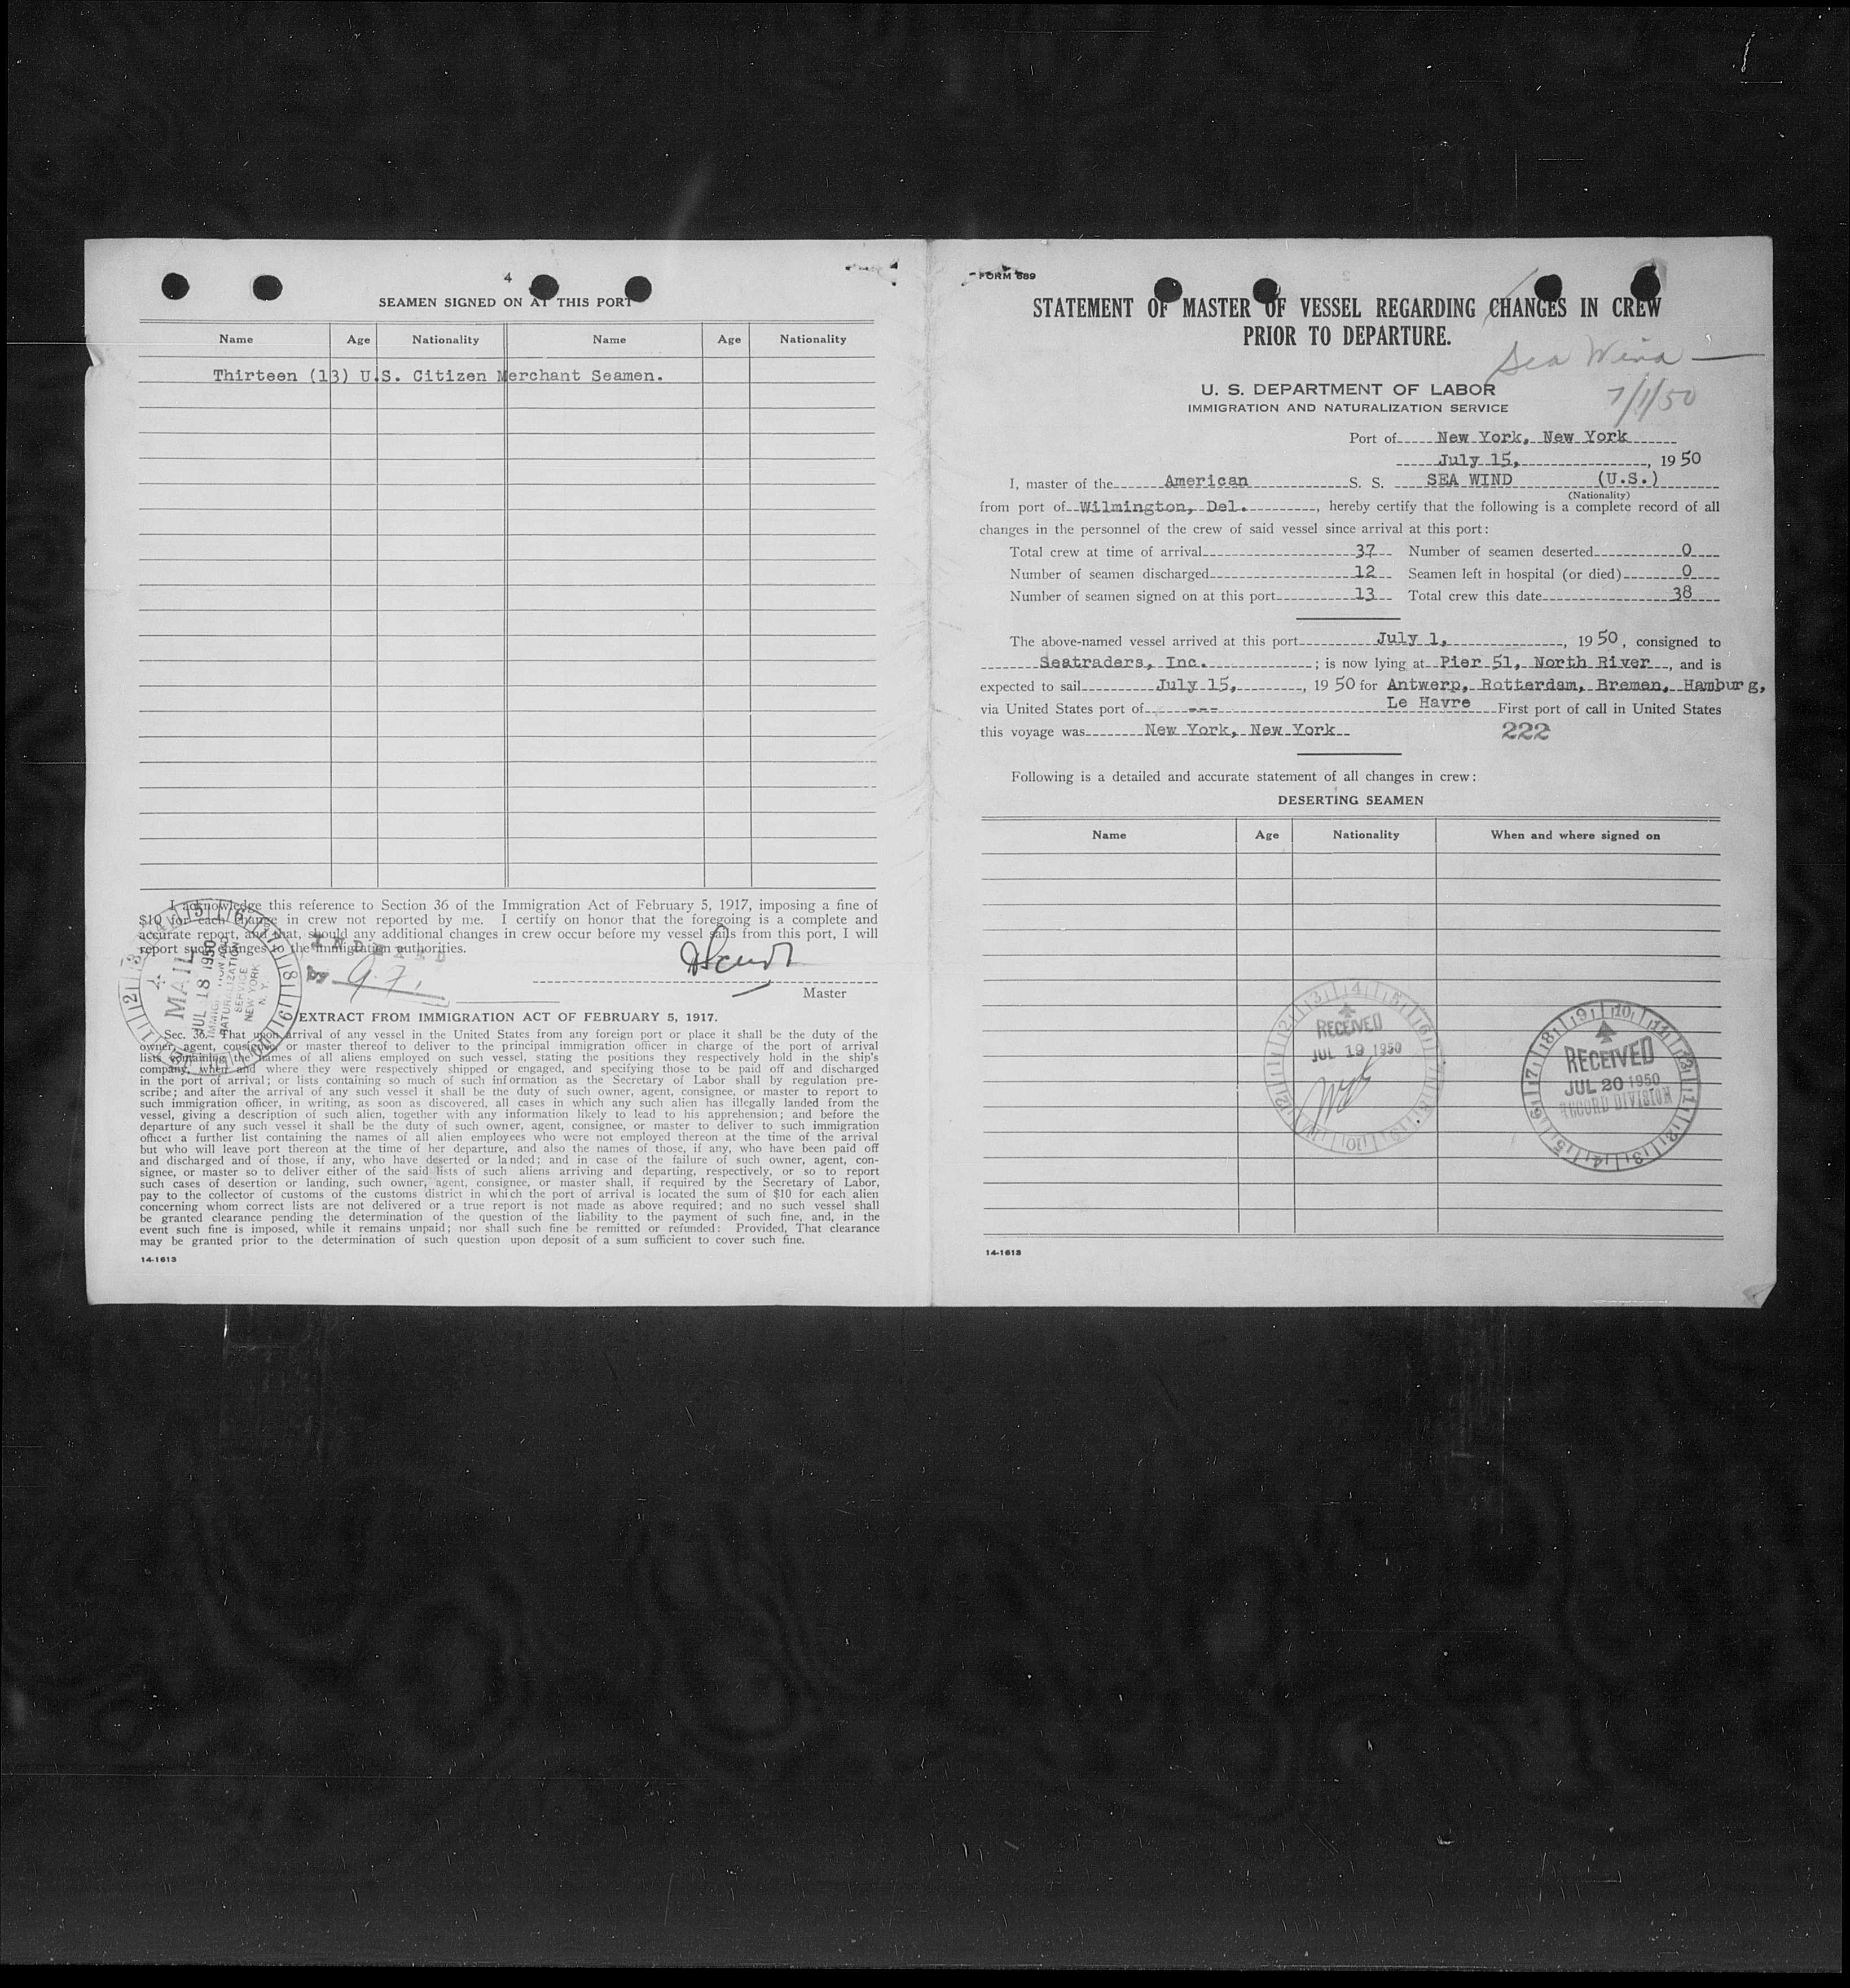 4
SEAMEN SIGNED ON AT THIS PORT
Name Age Nationality Name Age Nationality
Thirteen (13) U.S. Citizen Merchant Seamen.
I acknowledge this reference to Section 36 of the Immigration Act of February 5, 1917, imposing a fine of
$10 for each change in crew not reported by me. I certify on honor that the foregoing is a complete and
accurate report, and that, should any additional changes in crew occur before my vessel sails from this port, I will
report such changes to the immigration authorities.
INDEXED
by
MAIL
JUL 18 1950
IMMIGRATION AND
NATURALIZATION
SERVICE
NEW YORK
N. Y.
Master
EXTRACT FROM IMMIGRATION ACT OF FEBRUARY 5, 1917.
Sec. 36. That upon arrival of any vessel in the United States from any foreign port or place it shall be the duty of the
owner, agent, consignee, or master thereof to deliver to the principal immigration officer in charge of the port of arrival
lists containing the names of all aliens employed on such vessel, stating the positions they respectively hold in the ship's
company, when and where they were respectively shipped or engaged, and specifying those to be paid off and discharged
in the port of arrival; or lists containing so much of such information as the Secretary of Labor shall by regulation pre-
scribe; and after the arrival of any such vessel it shall be the duty of such owner, agent, consignee, or master to report to
such immigration officer, in writing, as soon as discovered, all cases in which any such alien has illegally landed from the
vessel, giving a description of such alien, together with any information likely to lead to his apprehension; and before the
departure of any such vessel it shall be the duty of such owner, agent, consignee, or master to deliver to such immigration
officer a further list containing the names of all alien employees who were not employed thereon at the time of the arrival
but who will leave port thereon at the time of her departure, and also the names of those, if any, who have been paid off
and discharged and of those, if any, who have deserted or landed; and in case of the failure of such owner, agent, con-
signee, or master so to deliver either of the said lists of such aliens arriving and departing, respectively, or so to report
such cases of desertion or landing, such owner, agent, consignee, or master shall, if required by the Secretary of Labor,
pay to the collector of customs of the customs district in which the port of arrival is located the sum of $10 for each alien
concerning whom correct lists are not delivered or a true report is not made as above required; and no such vessel shall
be granted clearance pending the determination of the question of the liability to the payment of such fine, and, in the
event such fine is imposed, while it remains unpaid; nor shall such fine be remitted or refunded: Provided, That clearance
may be granted prior to the determination of such question upon deposit of a sum sufficient to cover such fine.
14-1613
FORM 689
STATEMENT OF MASTER OF VESSEL REGARDING CHANGES IN CREW
PRIOR TO DEPARTURE.
Sea Wind
7/1/50
U. S. DEPARTMENT OF LABOR
IMMIGRATION AND NATURALIZATION SERVICE
Port of New York, New York
July 15, , 1950
I, master of the American S. S. SEA WIND (U.S.)
(Nationality)
from port of Wilmington, Del. , hereby certify that the following is a complete record of all
changes in the personnel of the crew of said vessel since arrival at this port:
Total crew at time of arrival 37 Number of seamen deserted 0
Number of seamen discharged 12 Seamen left in hospital (or died) 0
Number of seamen signed on at this port 13 Total crew this date 38
The above-named vessel arrived at this port July 1, , 1950, consigned to
Seatraders, Inc. ; is now lying at Pier 51, North River , and is
expected to sail July 15, , 1950 for Antwerp, Rotterdam, Bremen, Hamburg,
via United States port of --- Le Havre First port of call in United States
this voyage was New York, New York 222
Following is a detailed and accurate statement of all changes in crew:
DESERTING SEAMEN
Name Age Nationality When and where signed on
RECEIVED
JUL 19 1950
RECEIVED
JUL 20 1950
RECORD DIVISION
14-1613